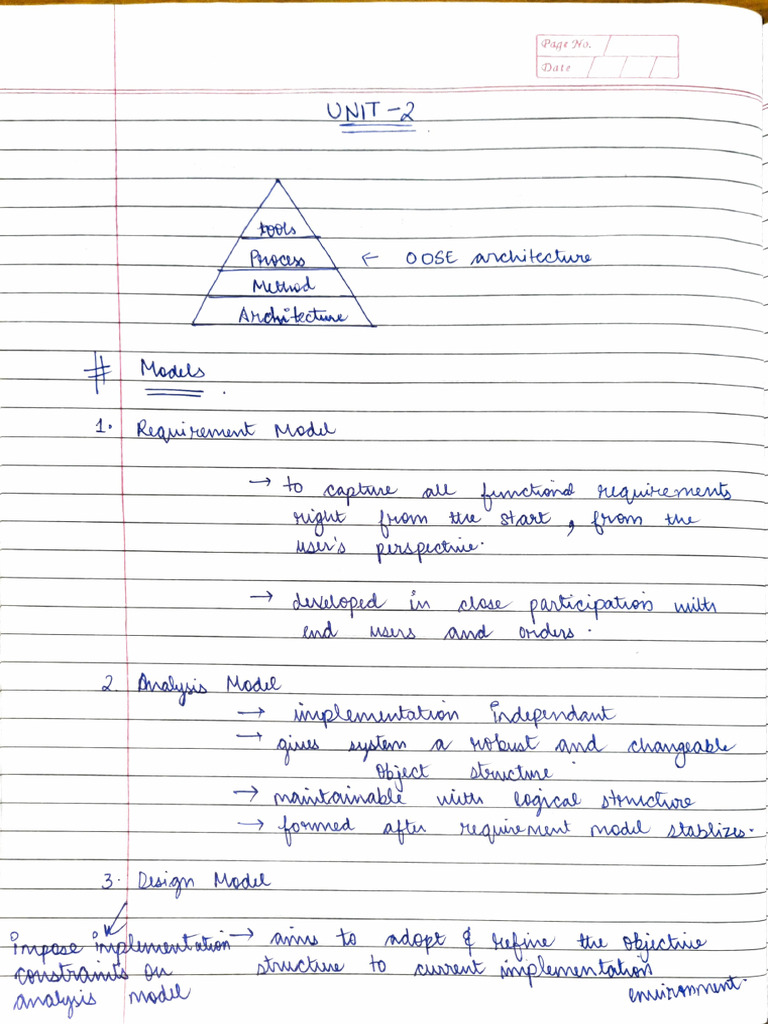 Page No.
Date
UNIT-2
tools
Process ← OOSE architecture
Method
Architecture
# Models
1. Requirement Model
→ to capture all functional requirements
right from the start, from the
user's perspective.
→ developed in close participation with
end users and orders.
2. Analysis Model
→ implementation Independant
→ gives system a robust and changeable
object structure
→ maintainable with logical structure
→ formed after requirement model stablizes.
3. Design Model
→ aims to adopt & refine the objective
structure to current implementation
environment.
impose implementation
constraints on
analysis model